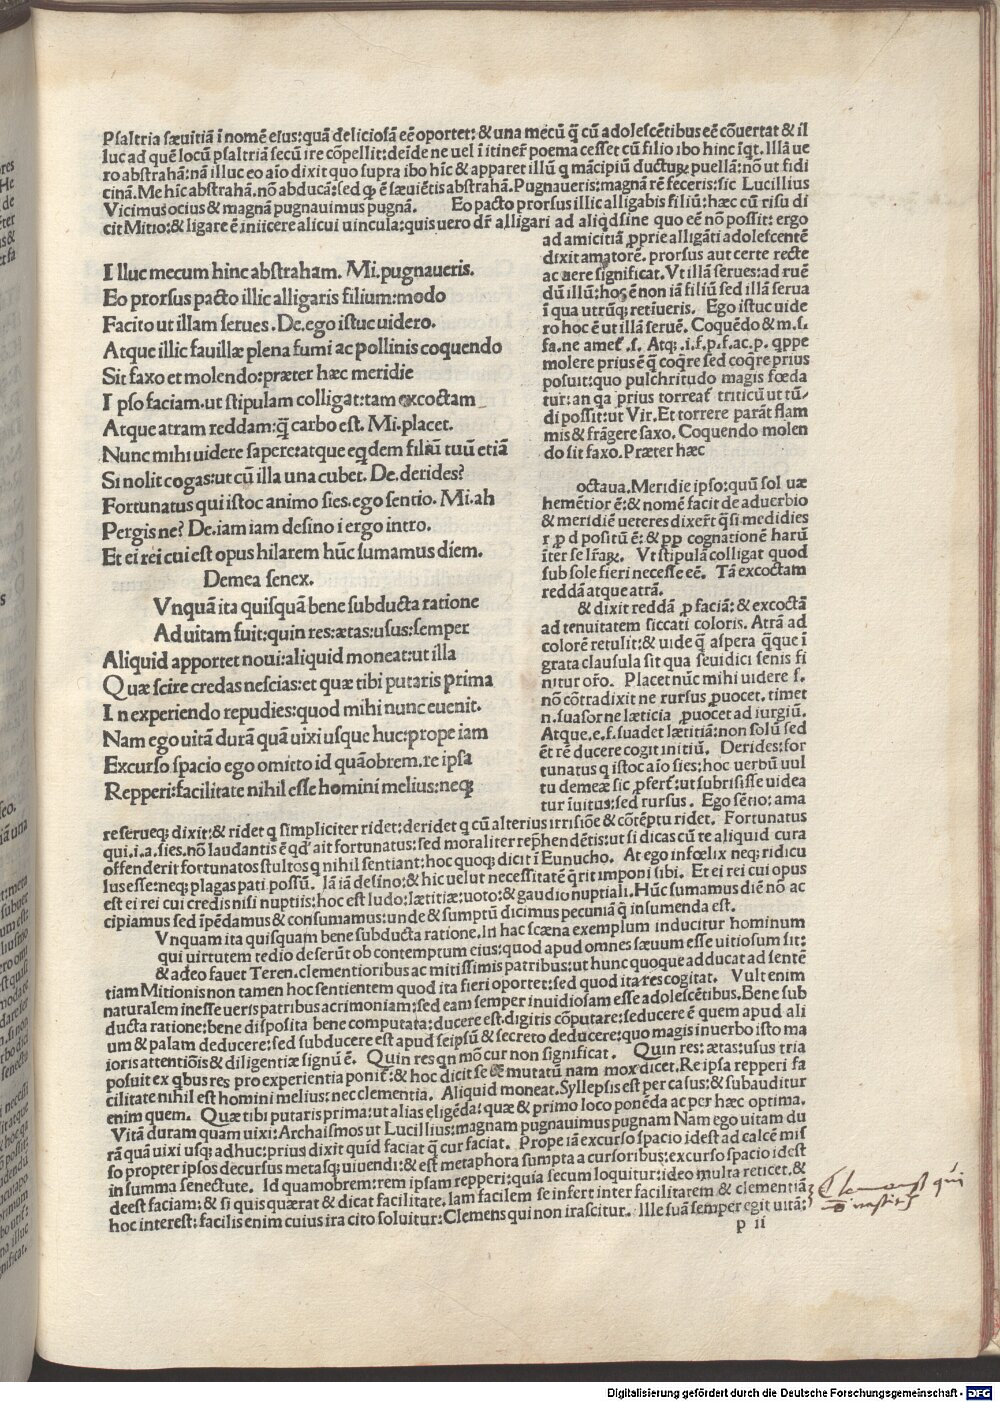 Psaltria sæuitiā ī nomē eius:quā deliciosā eē oportet: & una mecū q̄ cū adolescētibus eē cōuertat & il
luc ad quē locū psaltriā secū ire cōpellit:deīde ne uel ī itineř poema cesset cū filio ibo hinc īqt. Illā ue
ro abstrahā:nā illuc eo aīo dixit quo supra ibo hīc & apparet illū q mācipiū ductuꝝ puellā:nō ut fidi
cinā. Me hīc abstrahā.nō abducā:sed ꝙ ē sæuiētis abstrahā. Pugnaueris:magnā rē feceris:sic Lucillius
Vicimus ocius & magnā pugnauimus pugnā. Eo pacto prorsus illic alligabis filiū:hæc cū risu di
cit Mitio:& ligare ē iniicere alicui uīcula:quis uero dř alligari ad aliqd sine quo eē nō possit: ergo
Illuc mecum hinc abstraham. Mi.pugnaueris.
Eo prorsus pacto illic alligaris filium:modo
Facito ut illam serues. De.ego istuc uidero.
Atque illic fauillæ plena fumi ac pollinis coquendo
Sit faxo et molendo:præter hæc meridie
Ipso faciam.ut stipulam colligat:tam excoctam
Atque atram reddam:q̄ carbo est. Mi.placet.
Nunc mihi uidere sapere:atque eqdem filiū tuū etiā
Si nolit cogas:ut cū illa una cubet. De.derides?
Fortunatus qui istoc animo sies.ego sentio. Mi.ah
Pergis ne? De.iam iam desino i ergo intro.
Et ei rei cui est opus hilarem hūc sumamus diem.
Demea senex.
Vnquā ita quisquā bene subducta ratione
Ad uitam fuit:quin res:ætas:usus:semper
Aliquid apportet noui:aliquid moneat:ut illa
Quæ scire credas nescias:et quæ tibi putaris prima
In experiendo repudies:quod mihi nunc euenit.
Nam ego uitā durā quā uixi usque huc:prope iam
Excurso spacio ego omitto id quāobrem.re ipsa
Repperi:facilitate nihil esse homini melius:neqꝫ
ad amicitiā ꝓprie alligāti adolescentē
dixit amatorē. prorsus aut certe recte
ac uere significat. Vt illā serues:ad ruē
dū illū:hoc ē non iā filiū sed illā serua
ī qua utrūqꝫ retiueris. Ego istuc uide
ro hoc ē ut illā seruē. Coquēdo & m.s.
fa.ne amet̄ .s. Atqꝫ .i.f.p.f.ac.p. qppe
molere prius ē q̄ coqre sed coqre prius
posuit:quo pulchritudo magis fœda
tur:an qa prius torreat̄ triticū ut tū
di possit:ut Vir.Et torrere parāt flam
mis & frāgere saxo. Coquendo molen
do sit faxo. Præter hæc
octaua. Meridie ipso:quū sol uæ
hemētior ē:& nomē facit de aduerbio
& meridiē ueteres dixerť q̄si medidies
r ꝓ d positū ē: & pp cognationē harū
īter se lr̄aꝝ. Vt stipulā colligat quod
sub sole fieri necesse eē. Tā excoctam
reddā atque atrā.
& dixit reddā ꝓ faciā:& excoctā
ad tenuitatem siccati coloris. Atrā ad
colorē retulit:& uide q̄ aspera q̄que ī
grata clausula sit qua seuidici senis fi
nitur oř̄o. Placet nūc mihi uidere s.
nō cōtradixit ne rursus ꝓuocet. timet
n.suasor ne læticia ꝓuocet ad iurgiū.
Atque.e.f.suadet lætitiā:non solū sed
ēt rē ducere cogit initiū. Derides:for
tunatus q istoc aīo sies:hoc uerbū uul
tu demeæ sic ꝓfert̄:ut subrisisse uidea
tur īuitus:sed rursus. Ego sētio: ama
re serueqꝫ dixit:& ridet q simpliciter ridet:deridet q cū alterius irrisiōe & cōtēptu ridet. Fortunatus
qui.i.a.sies.nō laudantis ē qd' ait fortunatus:sed moraliter rep̄hendētis:ut si dicas cū te aliquid cura
offenderit fortunatos stultos q nihil sentiant:hoc quoqꝫ dicit ī Eunucho. At ego infœlix neqꝫ ridicu
lus esse:neqꝫ plagas pati possū. Iā iā desino:& hic uelut necessitatē q̄rit imponi sibi. Et ei rei cui opus
est ei rei cui credis nisi nuptiis:hoc est ludo:lætitiæ:uoto:& gaudio nuptiali. Hūc sumamus diē nō ac
cipiamus sed īpēdamus & consumamus:unde & sumptū dicimus pecuniā q̄ insumenda est.
Vnquam ita quisquam bene subducta ratione.In hac scæna exemplum inducitur hominum
qui uirtutem tedio deserūt ob contemptum eius:quod apud omnes sæuum esse uitiosum sit:
& adeo fauet Teren.clementioribus ac mitissimis patribus:ut hunc quoque adducat ad sentē
tiam Mitionis non tamen hoc sentientem quod ita fieri oportet:sed quod ita res cogitat. Vult enim
naturalem inesse ueris patribus acrimoniam:sed eam semper inuidiosam esse adolescētibus.Bene sub
ducta ratione:bene disposita bene computata:ducere est.digitis cōputare:seducere ē quem apud ali
um & palam deducere:sed subducere est apud seipsū & secreto deducere:quo magis in uerbo isto ma
ioris attentiōis & diligentiæ signū ē. Quin res qn mō cur non significat. Quin res: ætas:usus tria
posuit ex qbus res pro experientia ponit̄:& hoc dicit se mutatū nam mox dicet.Re ipsa repperi fa
cilitate nihil est homini melius:nec clementia. Aliquid moneat.Syllepsis est per casus:& subauditur
enim quem. Quæ tibi putaris prima:ut alias eligēda:quæ & primo loco ponēda ac per hæc optima.
Vitā duram quam uixi:Archaismos ut Lucillius:magnam pugnauimus pugnam Nam ego uitam du
rā quā uixi usqꝫ adhuc:prius dixit quid faciat q̄ cur faciat. Prope iā excurso spacio idest ad calcē mis
so propter ipsos decursus metasqꝫ uiuendi:& est metaphora sumpta a cursoribus:excurso spacio idest
in summa senectute. Id quamobrem:rem ipsam repperi:quia secum loquitur:ideo multa reticet.&
deest faciam:& si quis quærat & dicat facilitate.Iam facilem se infert inter facilitatem & clementiā
hoc interest:facilis enim cuius ira cito soluitur:Clemens qui non irascitur. Ille suā semper egit uitā:
Clemens est qui
nō irascitur
p ii
Digitalisierung gefördert durch die Deutsche Forschungsgemeinschaft - DFG